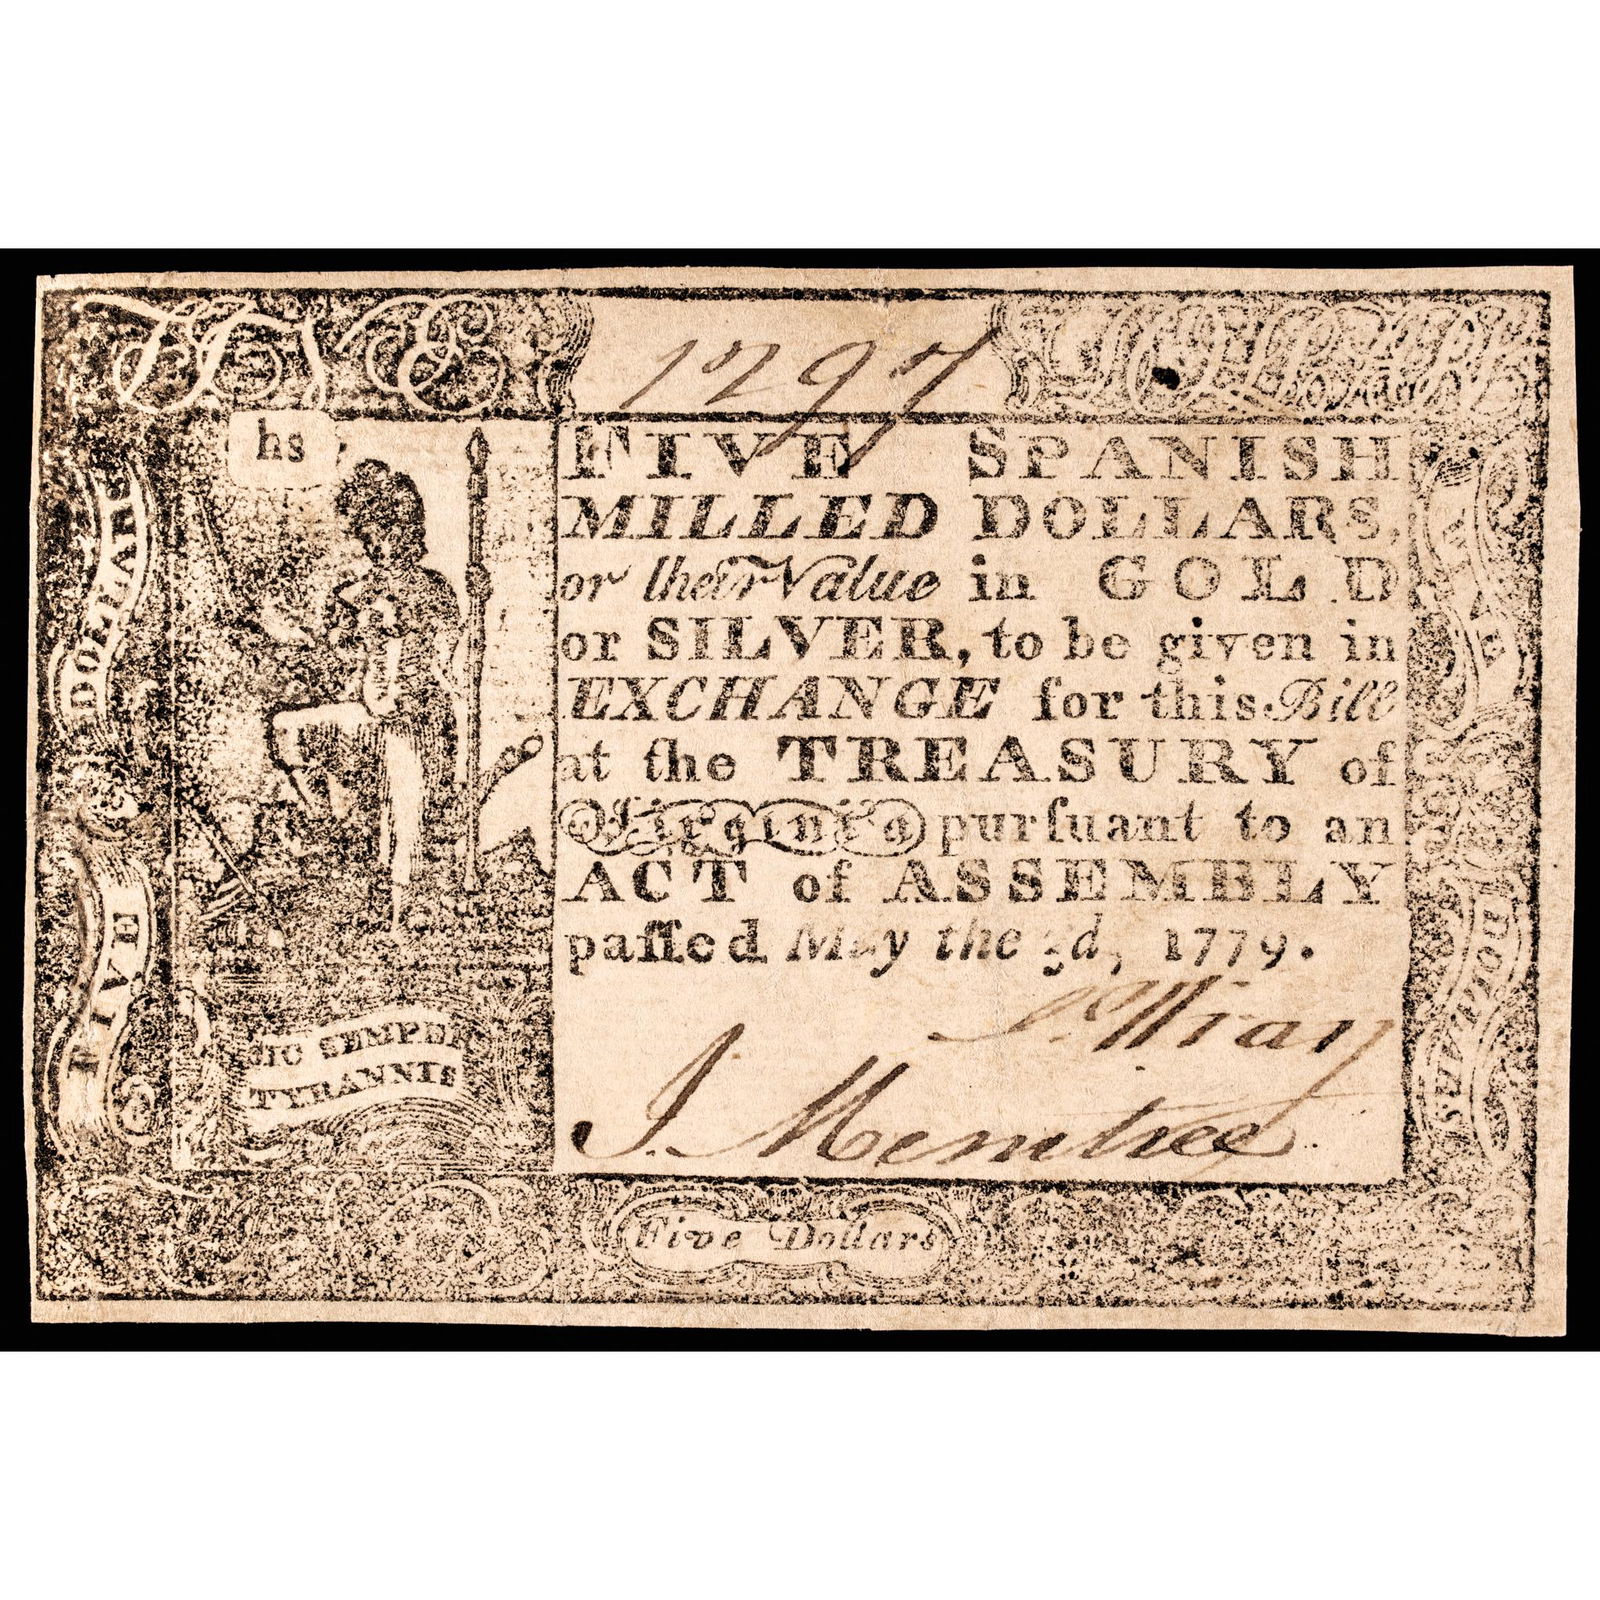 FIVE
1297
hs
FIVE SPANISH
MILLED DOLLARS,
or their Value in GOLD
or SILVER, to be given in
EXCHANGE for this Bill
at the TREASURY of
Virginia purſuant to an
ACT of ASSEMBLY
paſſed May the 3d, 1779.
J. Mentree
SIC SEMPER
TYRANNIS
FIVE DOLLARS
DOLLARS
Five Dollars